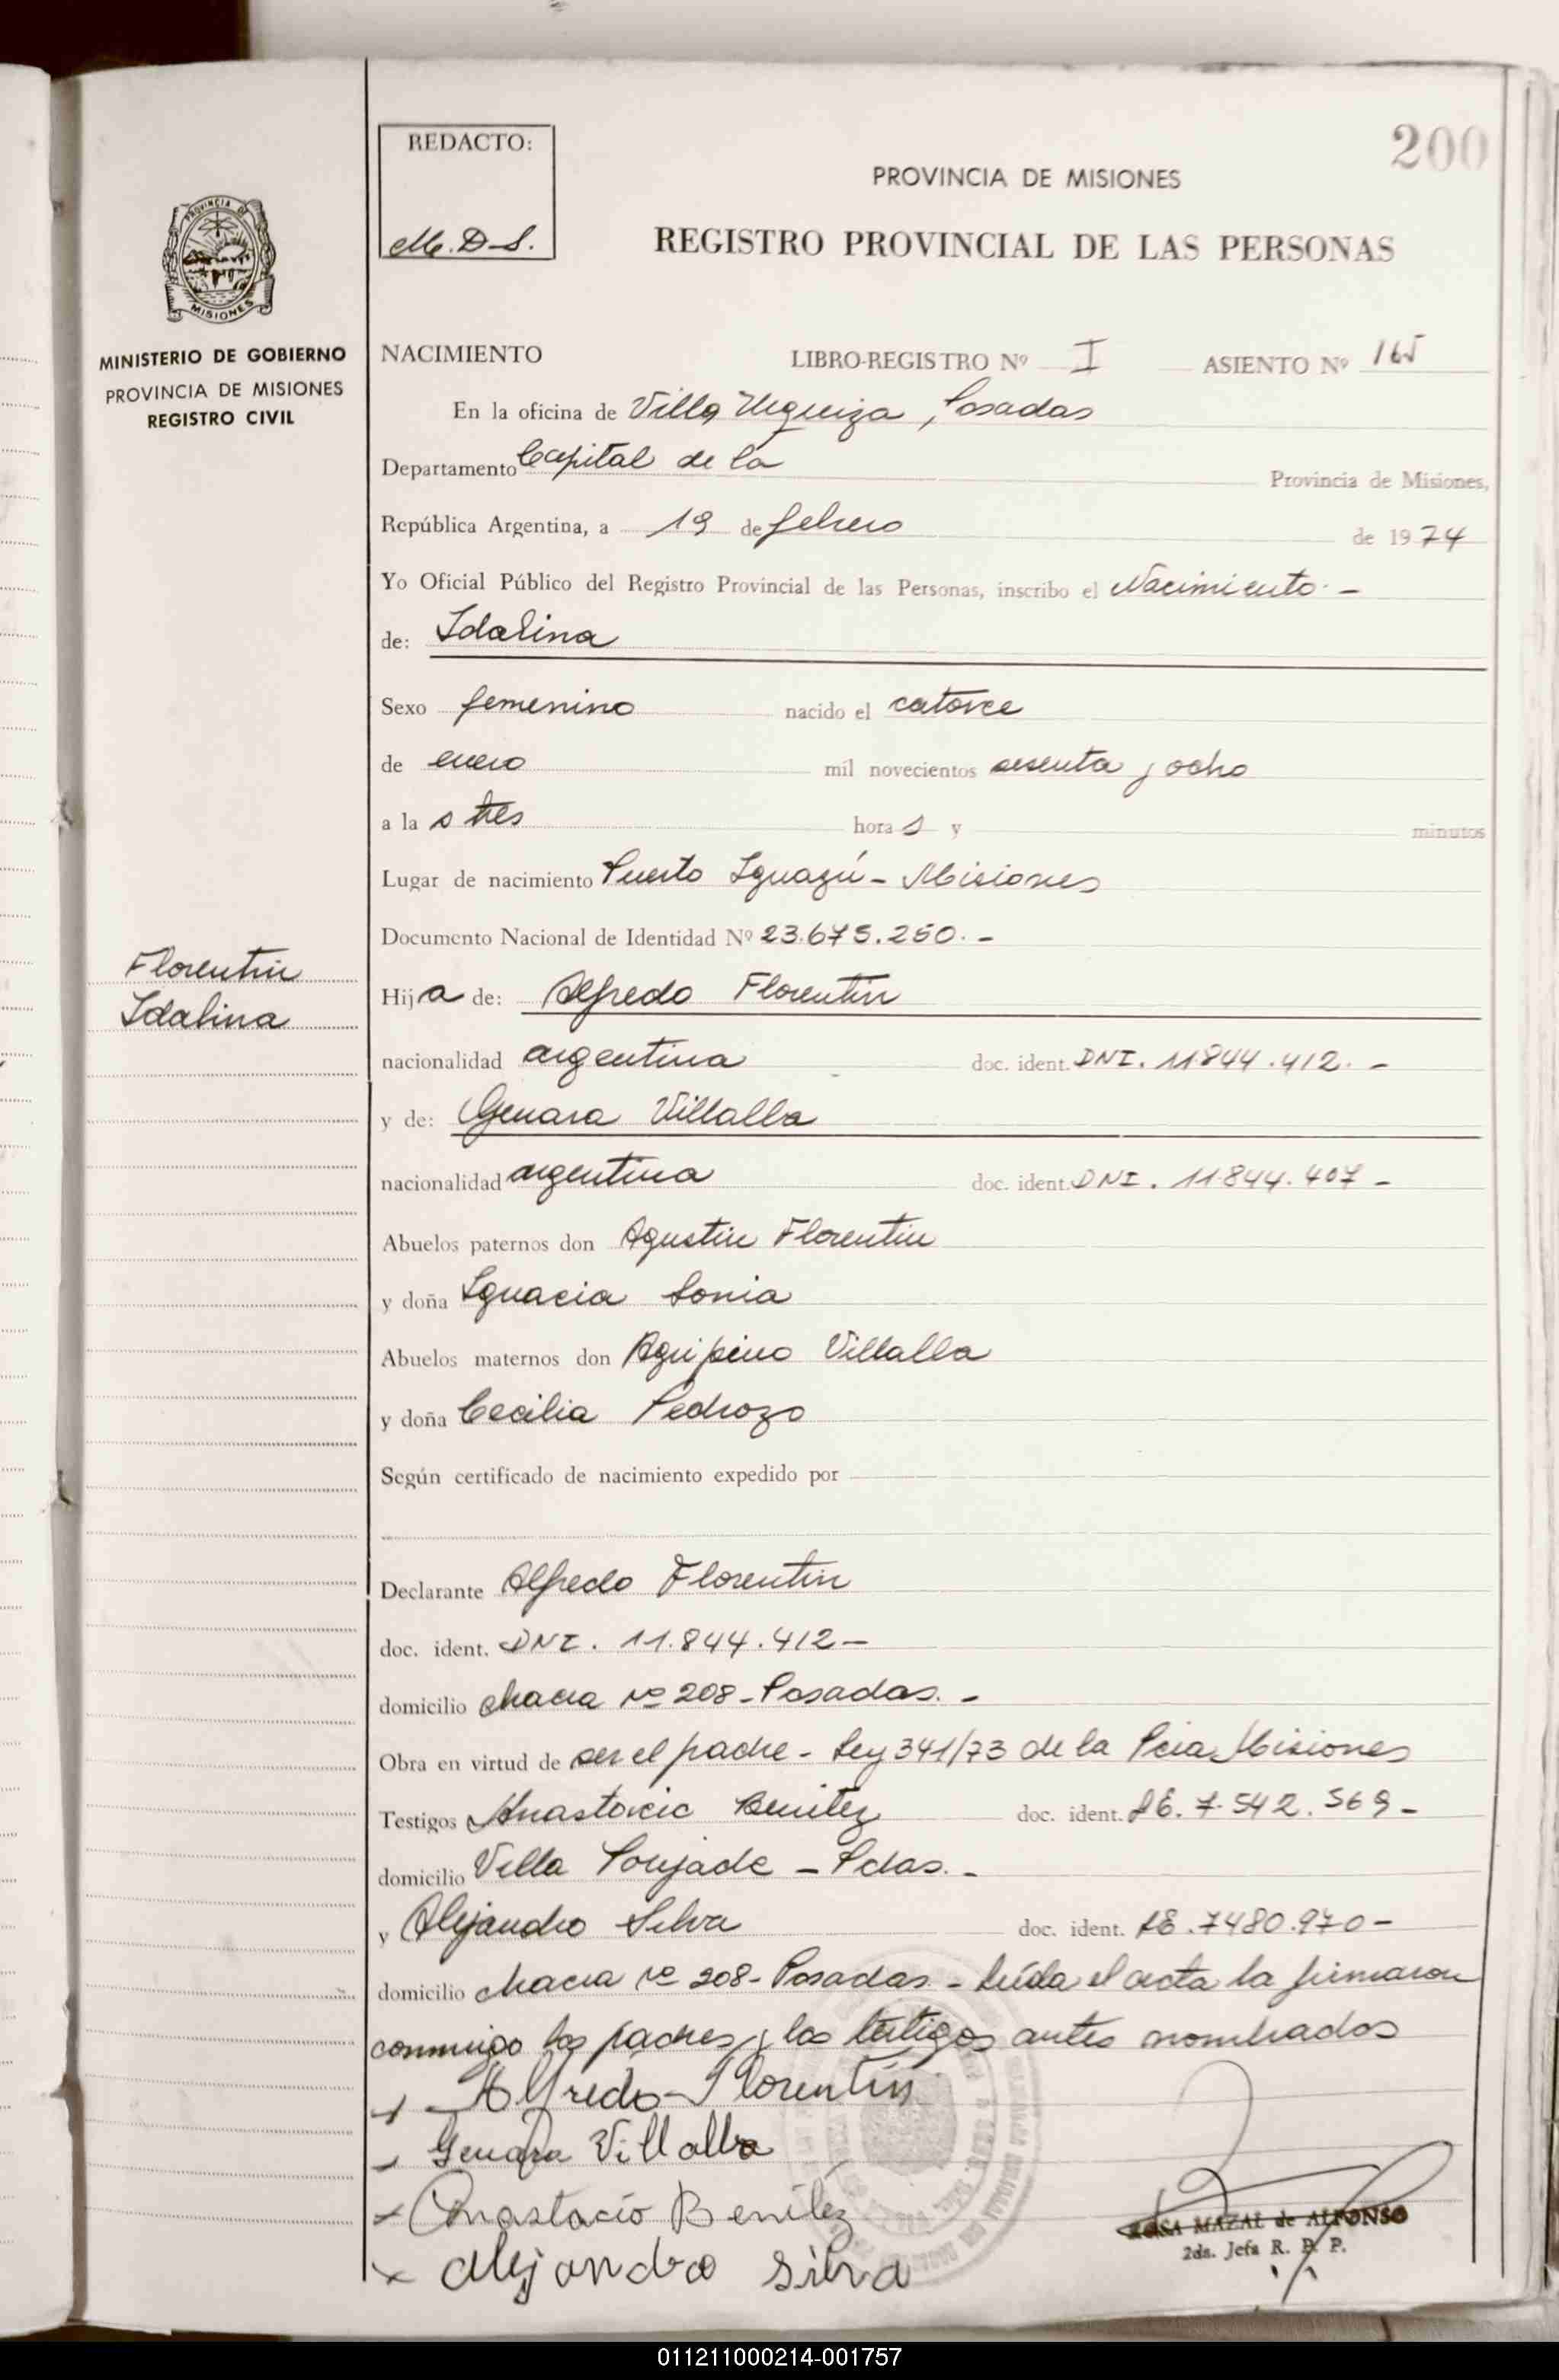 200
REDACTO:
M. D. S.
PROVINCIA DE MISIONES
REGISTRO PROVINCIAL DE LAS PERSONAS
PROVINCIA DE
MISIONES
MINISTERIO DE GOBIERNO
PROVINCIA DE MISIONES
REGISTRO CIVIL
NACIMIENTO LIBRO-REGISTRO Nº I ASIENTO Nº 165
En la oficina de Villa Urquiza, Posadas
Departamento Capital de la Provincia de Misiones,
República Argentina, a 19 de febrero de 1974
Yo Oficial Público del Registro Provincial de las Personas, inscribo el Nacimiento. -
de: Idalina
Sexo femenino nacido el catorce
de enero mil novecientos sesenta y ocho
a la s tres hora s y minutos
Lugar de nacimiento Puerto Iguazú - Misiones
Documento Nacional de Identidad Nº 23.675.250. -
Florentin
Idalina
Hija de: Alfredo Florentin
nacionalidad argentina doc. ident. DNI. 11.844.412. -
y de: Genara Villalba
nacionalidad argentina doc. ident. DNI. 11.844.407 -
Abuelos paternos don Agustin Florentin
y doña Ignacia Sonia
Abuelos maternos don Agripino Villalba
y doña Cecilia Pedrozo
Según certificado de nacimiento expedido por
Declarante Alfredo Florentin
doc. ident. DNI. 11.844.412 -
domicilio chacra Nº 208 - Posadas. -
Obra en virtud de ser el padre - Ley 341/73 de la Pcia Misiones
Testigos Anastacio Benitez doc. ident. LE. 7.542.569 -
domicilio Villa Poujade - Pdas. -
y Alejandro Silva doc. ident. LE. 7480.970 -
domicilio chacra Nº 208 - Posadas - Leída el acta la firmaron
conmigo los padres y los testigos antes nombrados
Alfredo Florentín
Genara Villalba
Anastacio Benítez
Alejandro Silva
ROSA MAZAL de ALFONSO
2da. Jefa R. P. P.
011211000214-001757